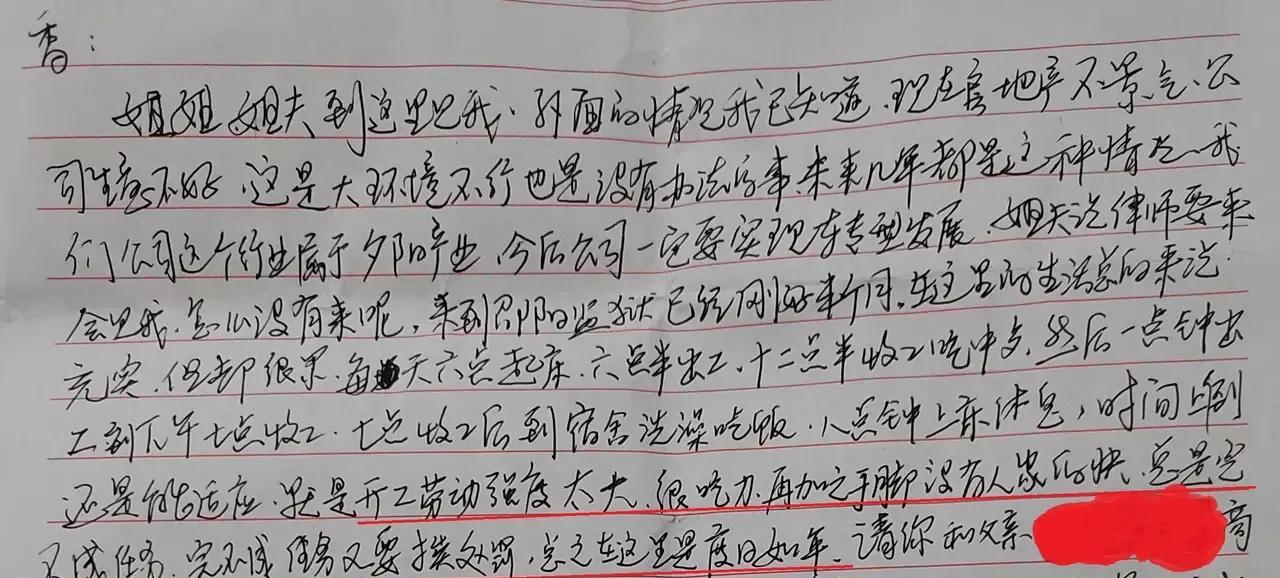 香：
姐姐姐夫到这里见我，外面的情况我已知道，现在房地产不景气，公
司生意不好，这是大环境不行也是没有办法的事，未来几年都是这种情况，我
们公司这个行业属于夕阳产业，今后公司一定要实现转型发展，姐夫说律师要来
会见我，怎么没有来呢，来到邵阳监狱已经刚好半个月，在这里的生活总的来说
充实，但却很累，每天六点起床，六点半出工，十二点半收工吃中饭，然后一点钟出
工到下午七点收工，七点收工后到宿舍洗澡吃饭，八点钟上床休息，时间上倒
还是能适应，就是开工劳动强度太大，很吃力，再加之手脚没有人家的快，总是完
不成任务，完不成任务又要挨处罚，总之在这里是度日如年，请你和父亲 商